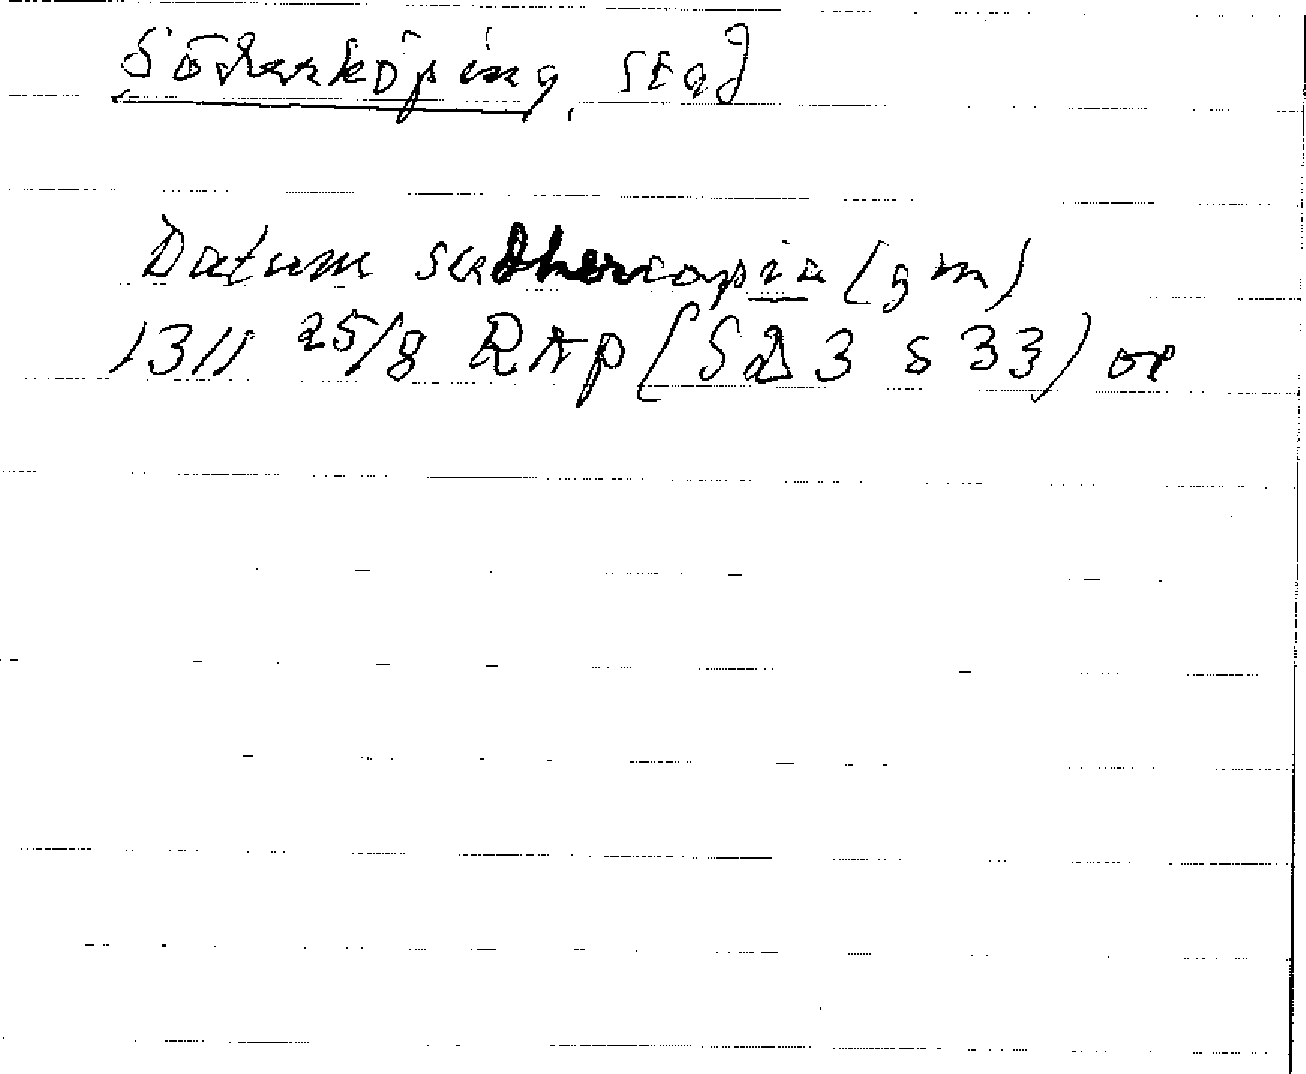 Söderköping, stad
Datum sudhercopia (gm)
1311 25/8 RAp (SD 3 s 33) or